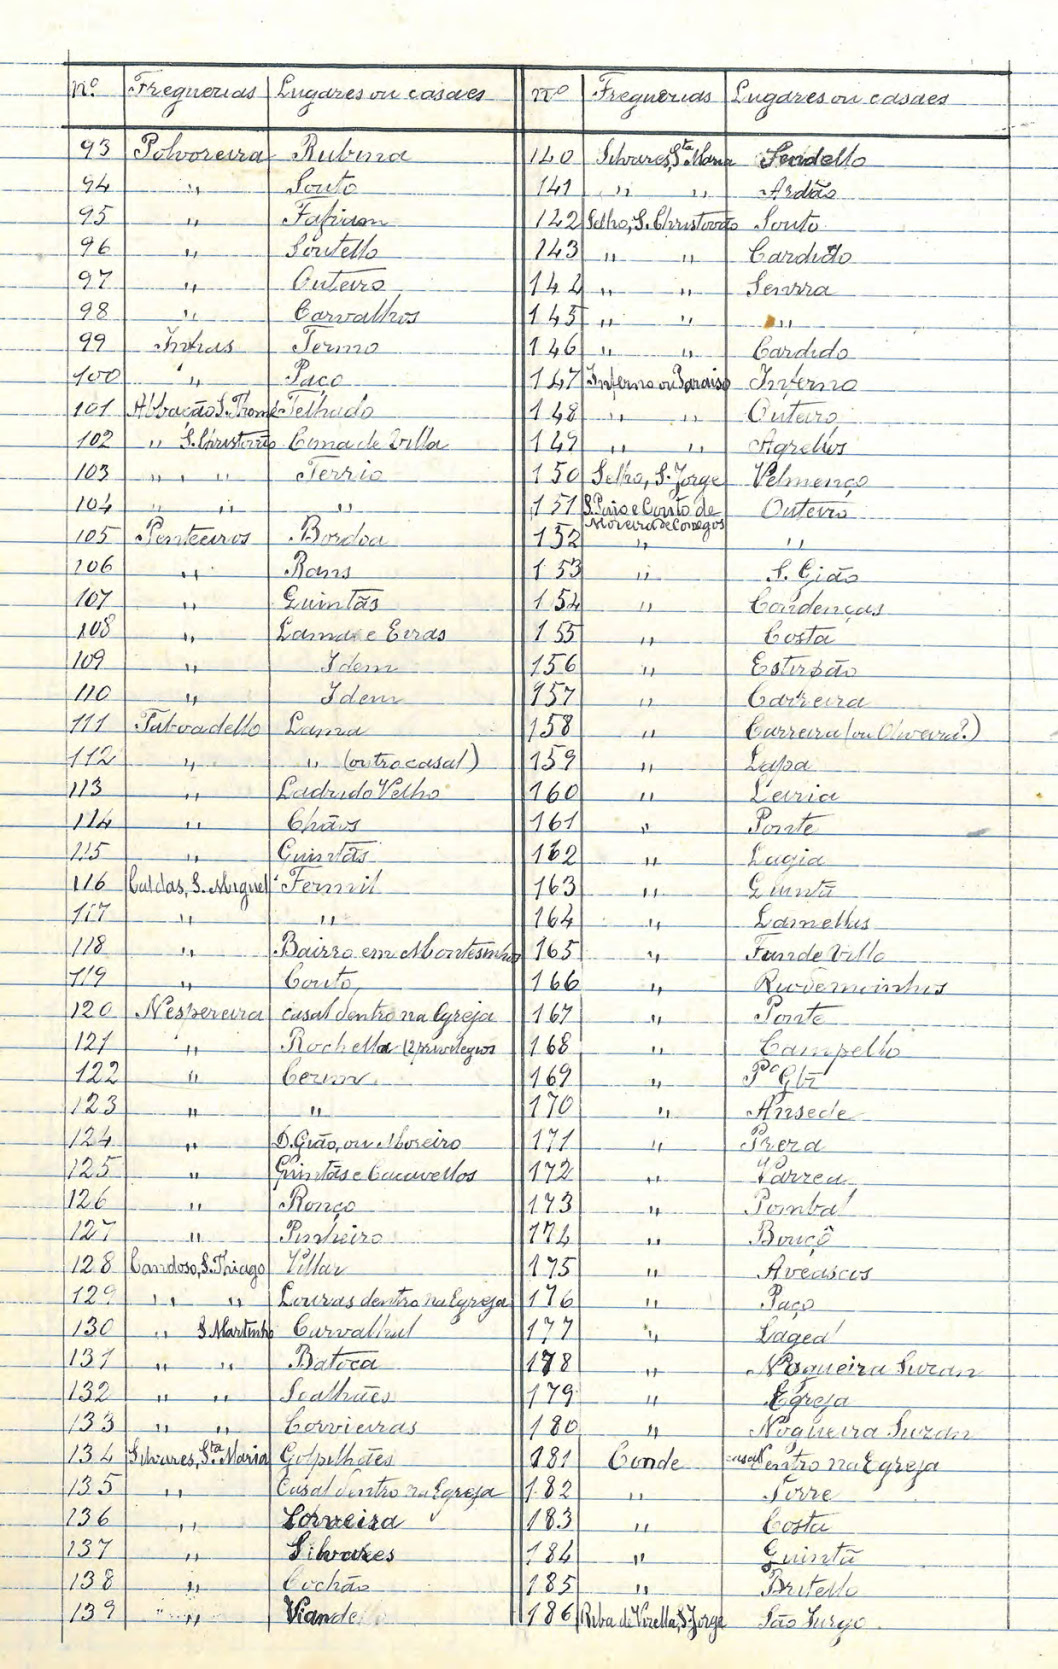 Nº Freguezias Lugares ou casaes
93 Polvoreira Rubina
94 " Souto
95 " Fafiam
96 " Soutello
97 " Outeiro
98 " Carvalhos
99 Inhas Termo
100 " Paço
101 Abbação S. Thomé Telhado
102 " S. Christovão Cima de Villa
103 " " Terrio
104 " " "
105 Penteeiros Bordoa
106 " Rans
107 " Quintãs
108 " Lama e Eiras
109 " Idem
110 " Idem
111 Taboadello Lama
112 " " (outro casal)
113 " Ladrido Velho
114 " Chãos
115 " Quintãs
116 Caldas, S. Miguel Fermil
117 " "
118 " Bairro em Montesinhos
119 " Couto
120 Nespereira casal dentro na Egreja
121 " Rochella (2 privilegios
122 "
123 " "
124 " D. Gião, ou Moreiro
125 " Quintãs e Cacavellos
126 " Ronço
127 " Pinheiro
128 Candoso, S. Thiago Villar
129 " " Louras dentro na Egreja
130 " S. Martinho Carvalhal
131 " " Batoca
132 " " Soalhães
133 " " Corvieiras
134 Silvares, Sta. Maria Golpilhães
135 " Casal dentro na Egreja
136 " Lorveira
137 " Silvares
138 " Cochão
139 " Viande
Nº Freguezias Lugares ou casaes
140 Silvares, Sta Maria Sendello
141 " " Ardão
142 Selho, S. Christovão Souto
143 " " Cardido
144 " " Senrra
145 " " "
146 " " Cardido
147 Inferno ou Paraiso Inferno
148 " " Outeiro
149 " " Agrellos
150 Selho, S. Jorge Velmenço
151 S. Paio e Couto de Moreira de Conegos Outeiro
152 " "
153 " S. Gião
154 " Condenças
155 " Costa
156 " Estirpão
157 " Carreira
158 " Carreira (ou Oliveira?)
159 " Lapa
160 " Leiria
161 " Ponte
162 " Lagia
163 " Quintã
164 " Lamellas
165 " Fundevilla
166 " Riodemoinhos
167 " Ponte
168 " Campello
169 "
170 " Ansede
171 "
172 " Varzea
173 " Pombal
174 " Bouçô
175 " Aveascos
176 " Paço
177 " Lageal
178 " Nogueira Suzan
179 " Egreja
180 " Nogueira Suzan
181 Conde casal dentro na Egreja
182 " Torre
183 " Costa
184 " Quintã
185 " Britello
186 Riba de Vizella, S. Jorge São Surgo